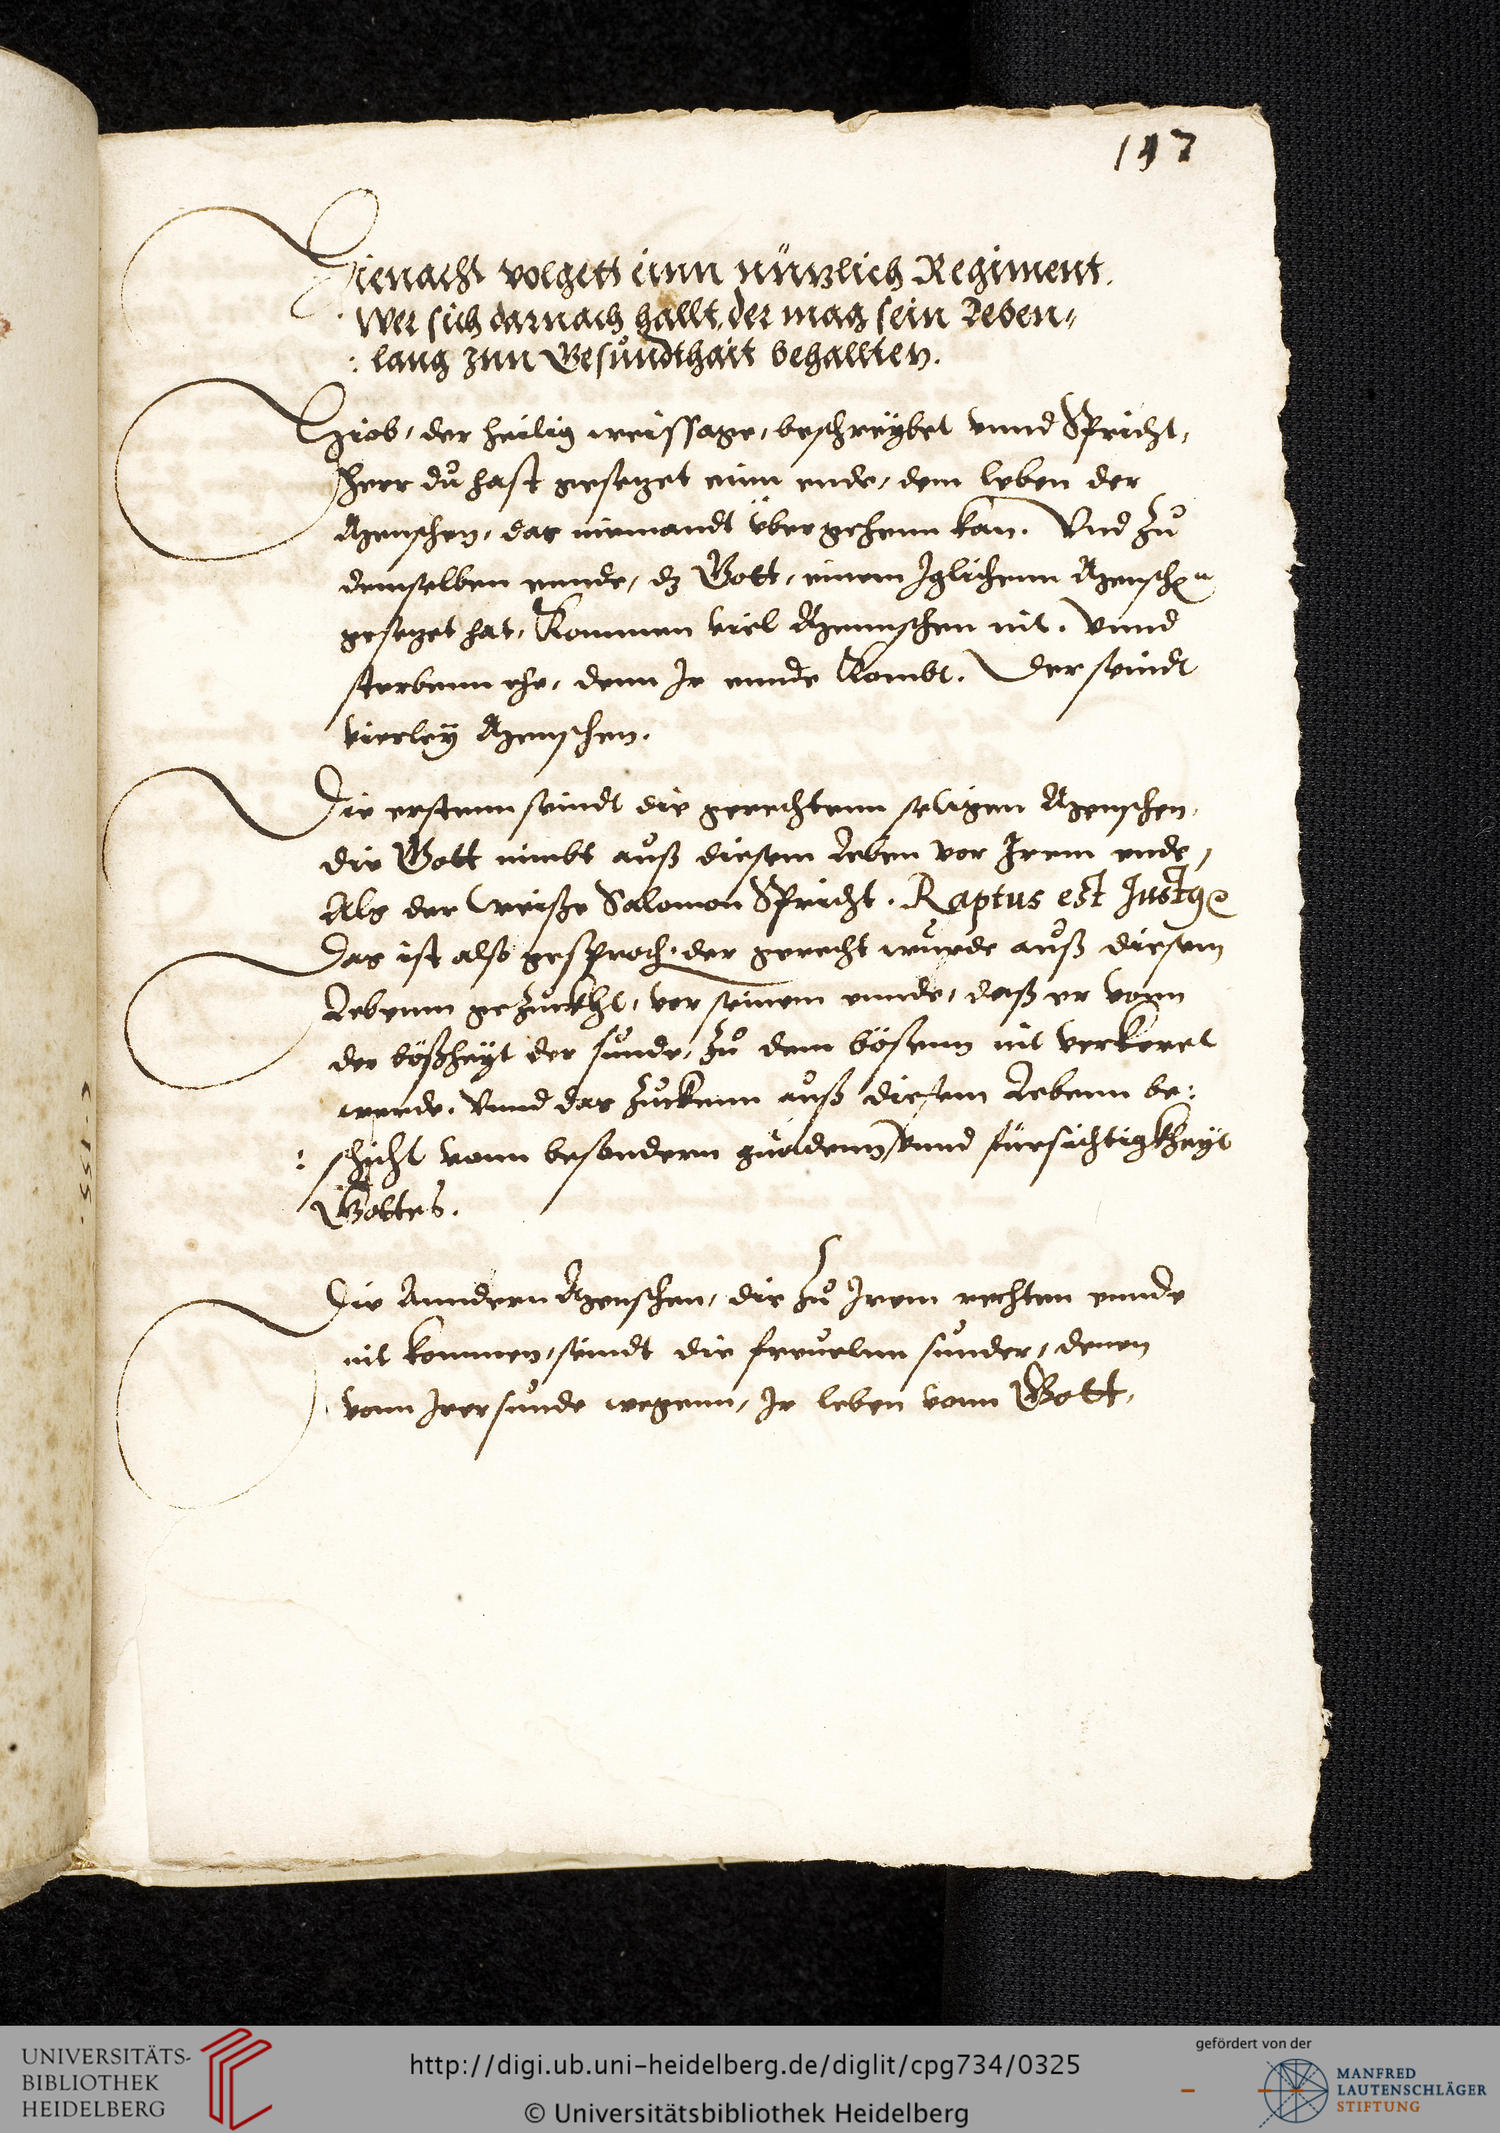 147
Hienach volgett einn nützlich Regiment.
Wer sich darnach hallt, der mag sein Leben⸗
: lang zun Gesundthait behallten.
Hiob, der heilig weissage, beschreybet vnnd Spricht,
Herr du hast gesetzet einn ende, dem leben der
Menschen, das niemandt über gehenn kan. Vnd zu
demselben ennde, dz Gott, einem Iglichenn Menschen
gesetzet hat, Kommen viel Mennschen nit. Vnnd
sterbenn ehe, denn Ir ennde Kombt. Der seindt
vierley Menschen.
Die erstenn seindt die gerechtenn seligen Menschen,
die Gott nimbt auß diesem Leben vor Irem ende,
Als der Weiße Salomon Spricht. Raptus est Just9
Das ist also gesproch. der gerecht wurde auß diesem
Lebenn gezuckht, vor seinem ennde, daß er vonn
der bößheyt der sunde, zu dem bösenn nit verkeret
werde. Vnnd das zuckenn auß diesem Lebenn be:
: schicht vonn besondern gnadenn vnnd fürsichtigkheyt
Gottes.
Die Anndern Menschen, die zu Irem rechten ennde
nit kommen, seindt die freuelnn sunder, denen
vonn Irer sunde wegenn, Ir leben vonn Gott,
UNIVERSITÄTS-
BIBLIOTHEK
HEIDELBERG
http://digi.ub.uni-heidelberg.de/diglit/cpg734/0325
© Universitätsbibliothek Heidelberg
gefördert von der
MANFRED
LAUTENSCHLÄGER
STIFTUNG